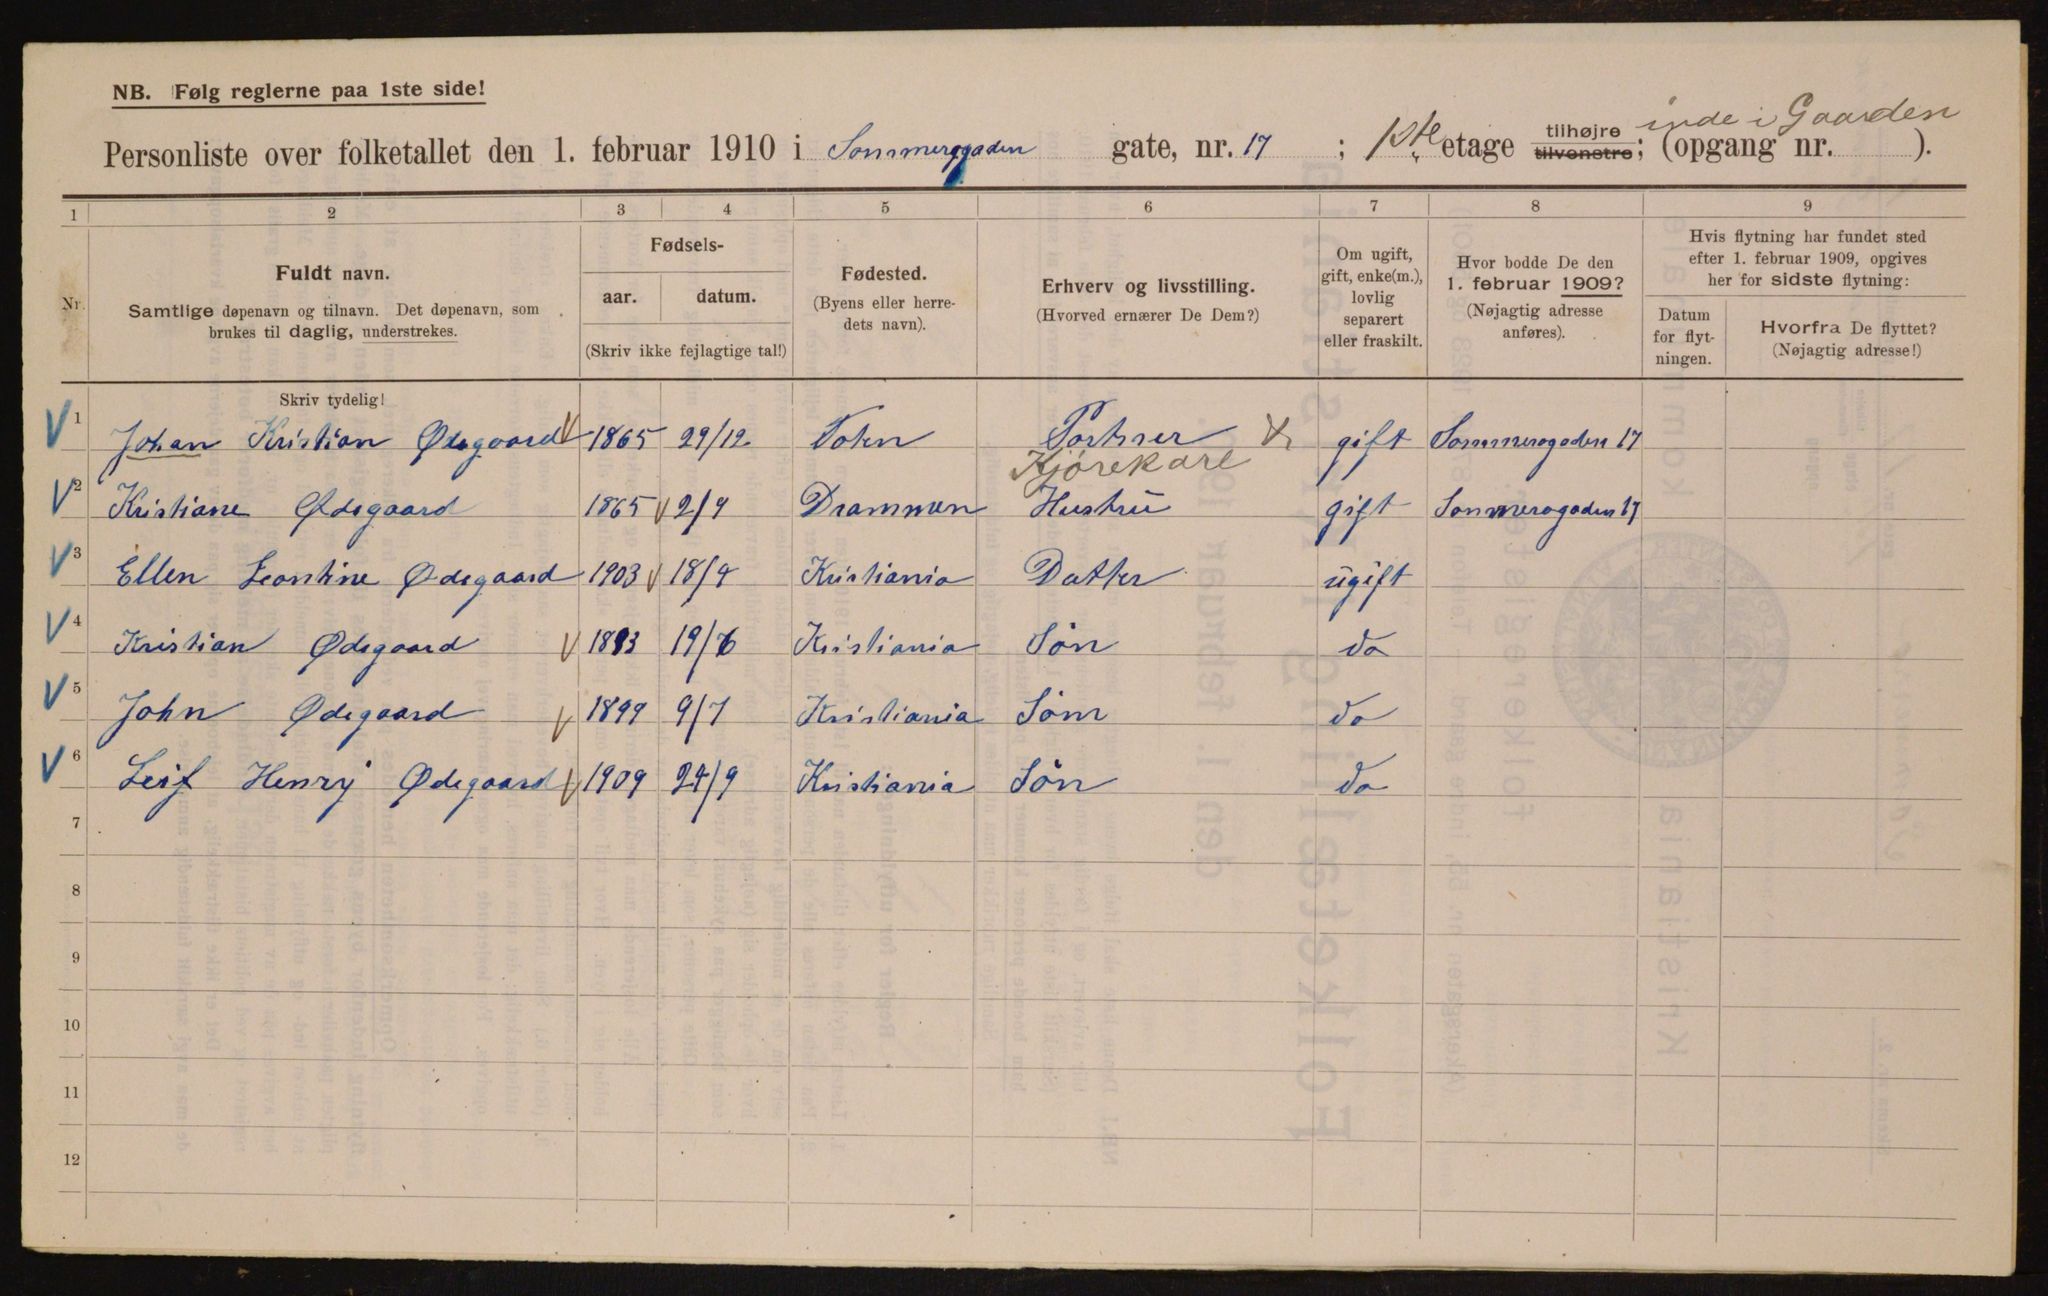 NB. Følg reglerne paa 1ste side!
inde i Gaarden
Personliste over folketallet den 1. februar 1910 i Sommerogaden gate, nr. 17 ; 1ste etage tilhøjre tilvenstre; (opgang nr. ).
1 2 3 4 5 6 7 8 9
Nr. Fuldt navn. Samtlige døpenavn og tilnavn. Det døpenavn, som brukes til daglig, understrekes.
Fødsels- aar. datum. (Skriv ikke fejlagtige tal!)
Fødested. (Byens eller herredets navn).
Erhverv og livsstilling. (Hvorved ernærer De Dem?)
Om ugift, gift, enke(m.), lovlig separert eller fraskilt.
Hvor bodde De den 1. februar 1909? (Nøjagtig adresse anføres).
Hvis flytning har fundet sted efter 1. februar 1909, opgives her for sidste flytning:
Datum for flytningen. Hvorfra De flyttet? (Nøjagtig adresse!)
Skriv tydelig!
1 Johan Kristian Ødegaard 1865 29/12 Toten gift Sommerogaden 17
Kjørekarl
2 Kristiane Ødegaard 1865 2/9 Drammen Hustru gift Sommerogaden 17
3 Ellen Leontine Ødegaard 1903 18/9 Kristiania Datter ugift
4 Kristian Ødegaard 1893 Kristiania Søn do
5 John Ødegaard 1899 9/7 Kristiania Søn do
6 Leif Henry Ødegaard 1909 24/9 Kristiania Søn do
7
8
9
10
11
12